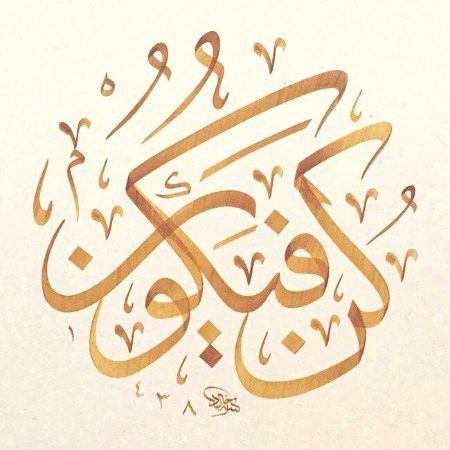 كُنْ فَيَكُونُ
١٤٣٨